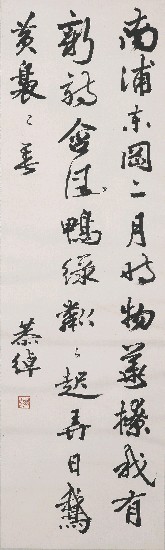 南浦東岡二月時物華撩我有
新詩含風鴨綠粼〻起弄日鵝
黃裊〻垂
恭綽